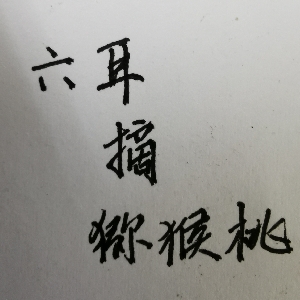 六耳
摘
猕猴桃